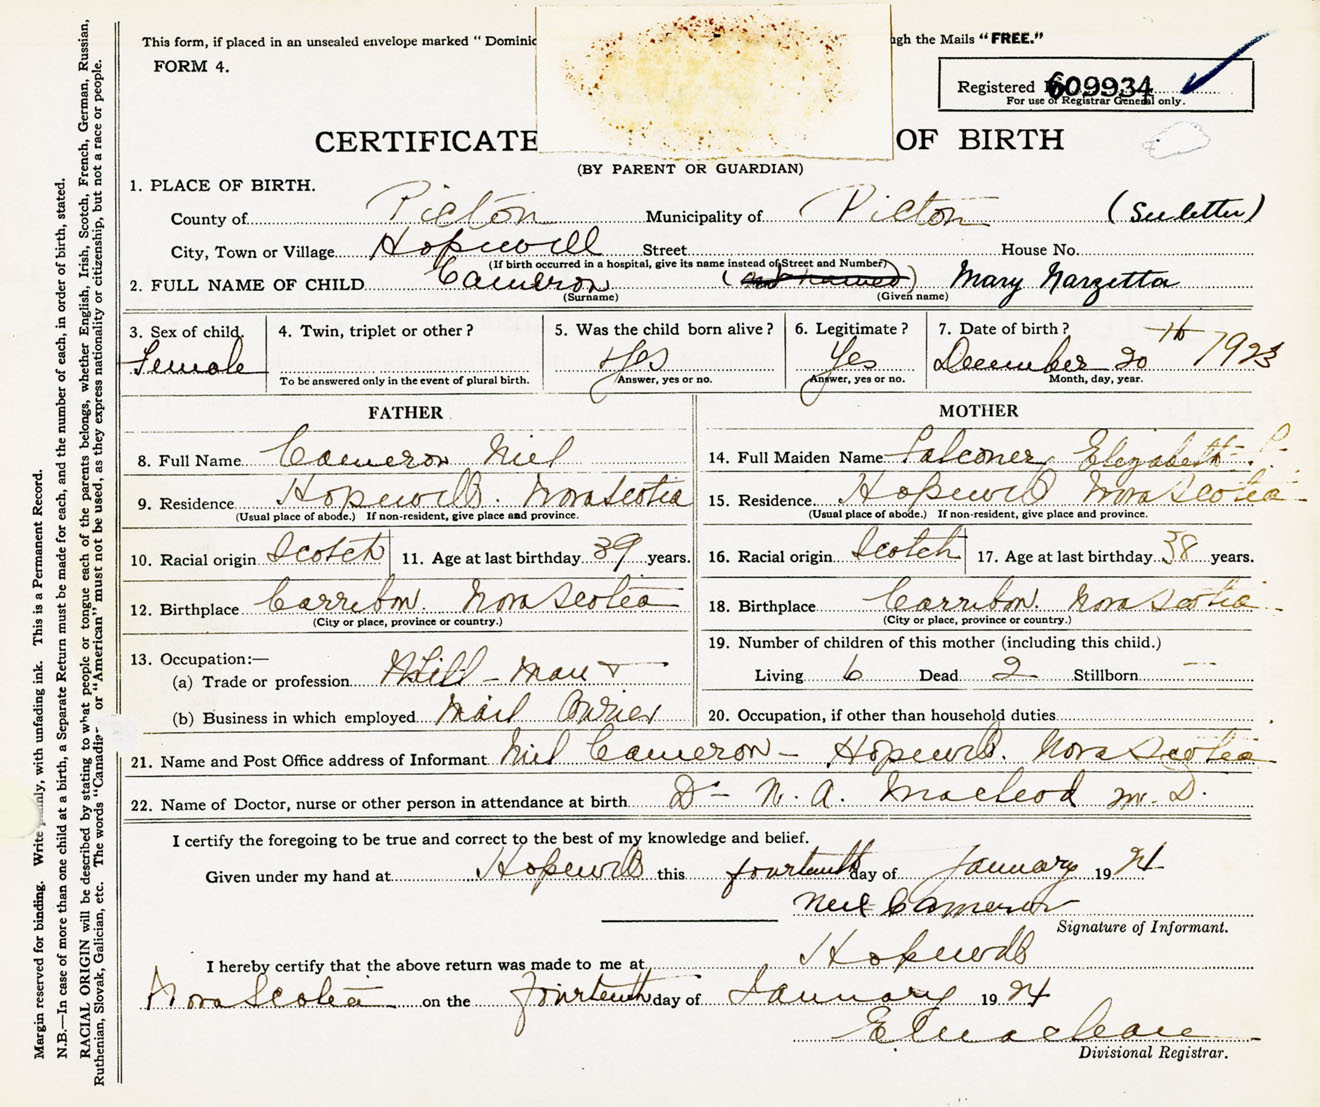 This form, if placed in an unsealed envelope marked "Dominic gh the Mails "FREE."
FORM 4.
Registered 609934
For use of Registrar General only.
CERTIFICATE OF BIRTH
(BY PARENT OR GUARDIAN)
1. PLACE OF BIRTH.
County of Pictou Municipality of Pictou (See letter)
City, Town or Village Hopewell Street House No.
(If birth occurred in a hospital, give its name instead of Street and Number)
2. FULL NAME OF CHILD Cameron (not named) Mary Narzetta
(Surname) (Given name)
3. Sex of child. Female
4. Twin, triplet or other?
To be answered only in the event of plural birth.
5. Was the child born alive? Yes
Answer, yes or no.
6. Legitimate? Yes
Answer, yes or no.
7. Date of birth? December 20th 1923
Month, day, year.
FATHER
8. Full Name Cameron Niel
9. Residence Hopewell. Nova Scotia
(Usual place of abode.) If non-resident, give place and province.
10. Racial origin Scotch 11. Age at last birthday 39 years.
12. Birthplace Carribon. Nova Scotia
(City or place, province or country.)
13. Occupation:—
(a) Trade or profession Mill-man +
(b) Business in which employed Mail Currier
MOTHER
14. Full Maiden Name Falconer, Elizabeth P.
15. Residence Hopewell Nova Scotia
(Usual place of abode.) If non-resident, give place and province.
16. Racial origin Scotch 17. Age at last birthday 38 years.
18. Birthplace Carribon. Nova Scotia
(City or place, province or country.)
19. Number of children of this mother (including this child.)
Living 6 Dead 2 Stillborn --
20. Occupation, if other than household duties
21. Name and Post Office address of Informant Niel Cameron - Hopewell. Nova Scotia
22. Name of Doctor, nurse or other person in attendance at birth Dr - N. A. Macleod M. D.
I certify the foregoing to be true and correct to the best of my knowledge and belief.
Given under my hand at Hopewell this fourteenth day of January 1924
Neil Cameron
Signature of Informant.
I hereby certify that the above return was made to me at Hopewell
Nova Scotia on the fourteenth day of January 1924
E Maclean
Divisional Registrar.
Margin reserved for binding. Write plainly, with unfading ink. This is a Permanent Record.
N.B.—In case of more than one child at a birth, a Separate Return must be made for each, and the number of each, in order of birth, stated.
RACIAL ORIGIN will be described by stating to what people or tongue each of the parents belongs, whether English, Irish, Scotch, French, German, Russian,
Ruthenian, Slovak, Galician, etc. The words "Canadia- or "American" must not be used, as they express nationality or citizenship, but not a race or people.